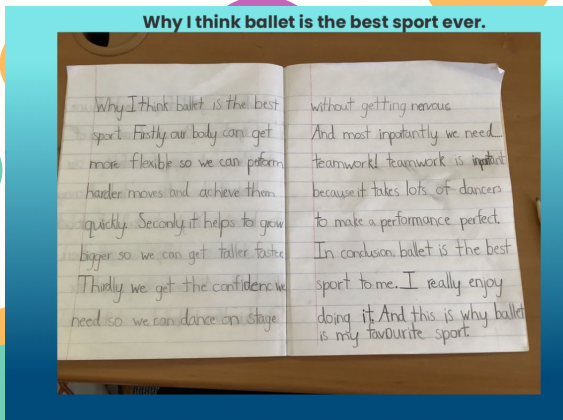 Why I think ballet is the best sport ever.
Why I think ballet is the best
sport. Firstly our body can get
more flexible so we can peform
harder moves and achieve them
quickly. Seconly it helps to grow
bigger so we can get taller faster
Thirdly we get the confidenc we
need so we can dance on stage
without getting nervous
And most inpotantly we need
teamwork! teamwork is inpotant
because it takes lots of dancers
to make a performance perfect.
In conclusion, ballet is the best
sport to me. I really enjoy
doing it. And this is why ballet
is my favourite sport.